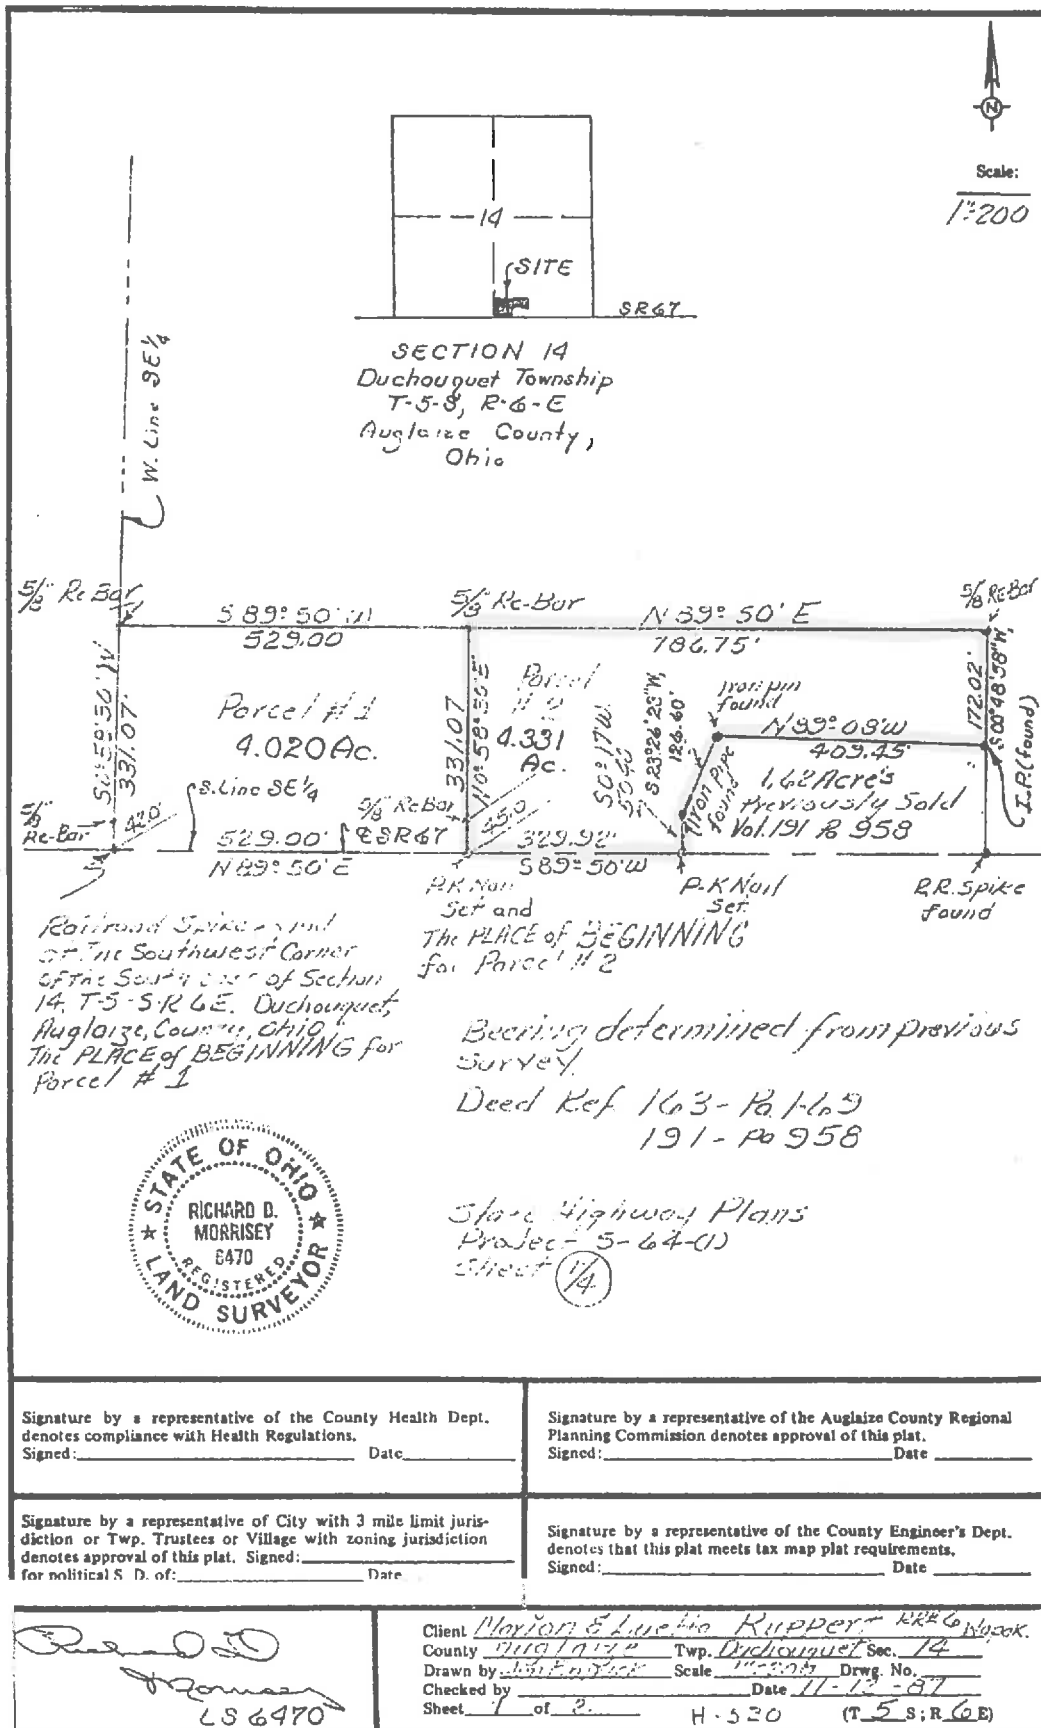 N
Scale:
1"=200
14
SITE
SR67
SECTION 14
Duchouquet Township
T-5-S, R-6-E
Auglaize County,
Ohio
W. Line SE 1/4
5/8" Re Bar
S 89° 50' W
529.00
5/8" Re-Bar
N 89° 50' E
786.75'
5/8 RE Bar
S 0° 59' 50" W
331.07'
Parcel #1
4.020 Ac.
331.07
Parcel
4.331
Ac.
S 0° 17' W
50.40
S 23° 26' 23" W,
126.60'
Iron pin
found
N 89° 08' W
409.45'
172.02'
S 00° 48' 58" W,
I.P. (found)
Iron Pipe
found
1.62 Acre's
Previously Sold
Vol. 191 Pg 958
S. Line SE 1/4
5/8 Re Bar
5/8"
Re-Bar
42.0
45.0
529.00'
N 89° 50' E
℄ SR 67
329.92'
S 89° 50' W
P.K. Nail
Set and
The PLACE of BEGINNING
for Parcel #2
P.K Nail
Set.
R.R. Spike
found
Railroad Spike found
at The Southwest Corner
of The of Section
14, T-5-S-R 6E. Duchouquet,
Auglaize, County, Ohio
The PLACE of BEGINNING for
Parcel # 1
Bearing determined from previous
Survey.
Deed Ref. 163 - Pg.
191 - Pg 958
State Highway Plans
Project S-64-(1)
Sheet 1/4
STATE OF OHIO
RICHARD D.
MORRISEY
6470
REGISTERED
LAND SURVEYOR
Signature by a representative of the County Health Dept.
denotes compliance with Health Regulations.
Signed: Date
Signature by a representative of the Auglaize County Regional
Planning Commission denotes approval of this plat.
Signed: Date
Signature by a representative of City with 3 mile limit juris-
diction or Twp. Trustees or Village with zoning jurisdiction
denotes approval of this plat. Signed:
for political S. D. of: Date
Signature by a representative of the County Engineer's Dept.
denotes that this plat meets tax map plat requirements.
Signed: Date
Richard D
Morrisey
LS 6470
Client Marion & Kuppert RR#6 Wapak.
County Auglaize Twp. Duchouquet Sec. 14
Drawn by Scale 1"=200 Drwg. No.
Checked by Date 11-12-87
Sheet 1 of 2
H-520 (T 5 S; R 6 E)